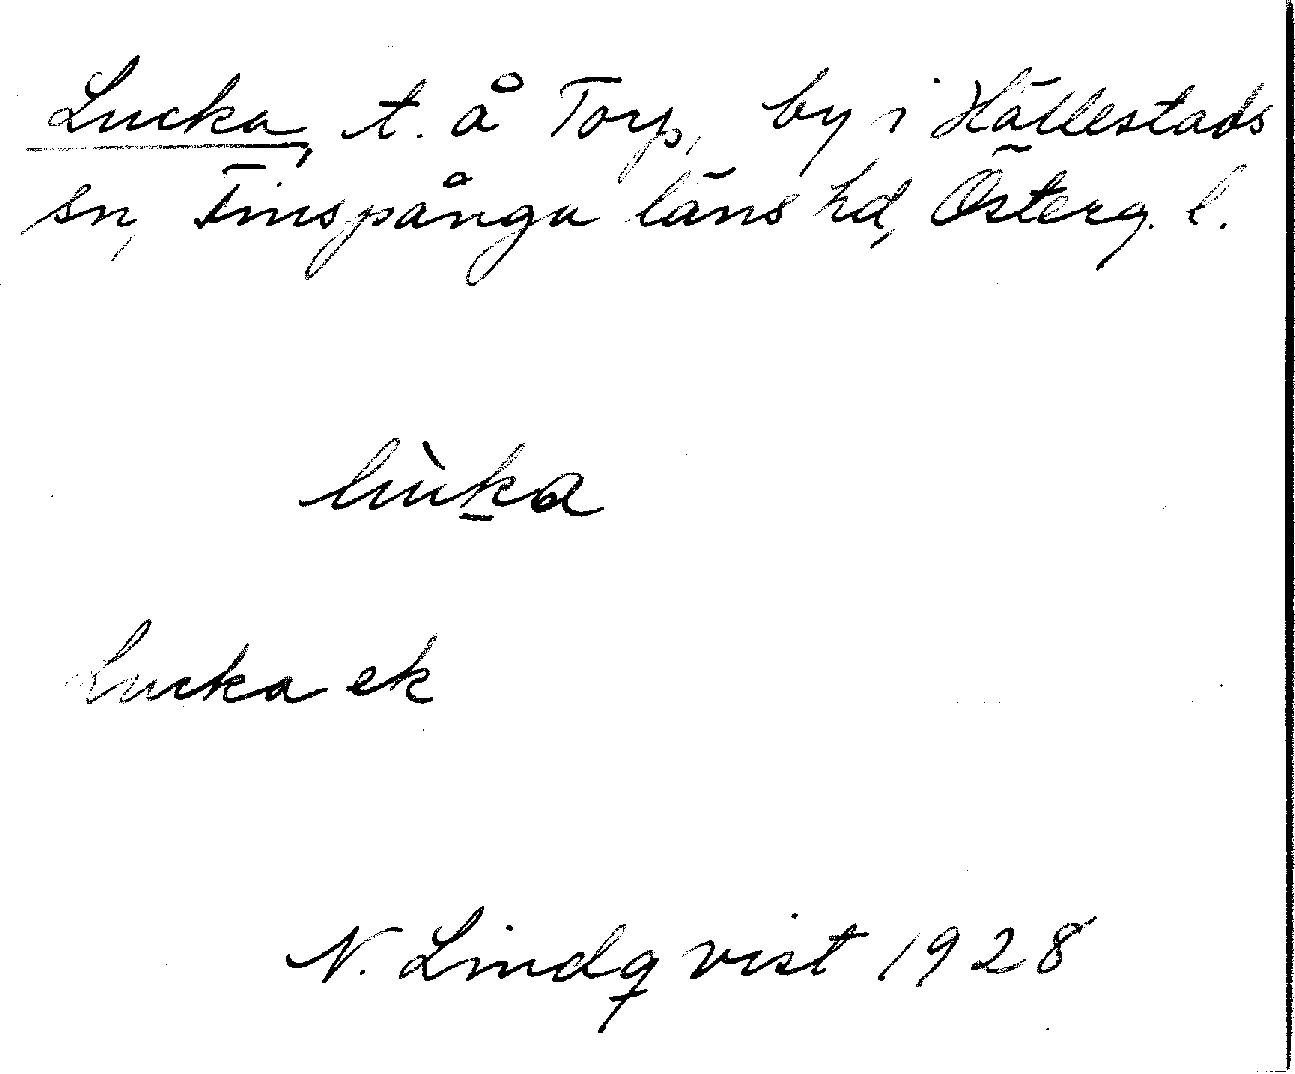 Lucka, t. å Torp, by i Hällestads
sn, Finspånga läns hd, Österg. l.
lùka
Lucka ek
N. Lindqvist 1928